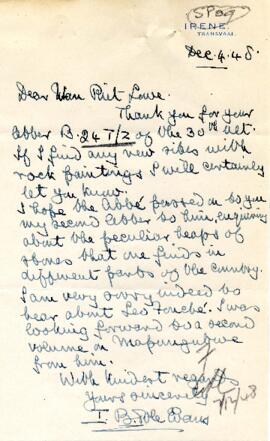 IRENE,
TRANSVAAL
Dec. 4. 48.
Dear Van Riet Lowe.
Thank you for your
letter B. 24 T/2 of the 30th ult.
If I find any new sites with
rock paintings I will certainly
let you know.
I hope the Abbé passed on to you
my second letter to him, enquiring
about the peculiar heaps of
stones that one finds in
different parts of the country.
I am very sorry indeed to
hear about Leo Fouché. I was
looking forward to a second
volume on Mapungubwe
from him.
With kindest regards
Yours sincerely
I. B. Pole Evans
7/12/48